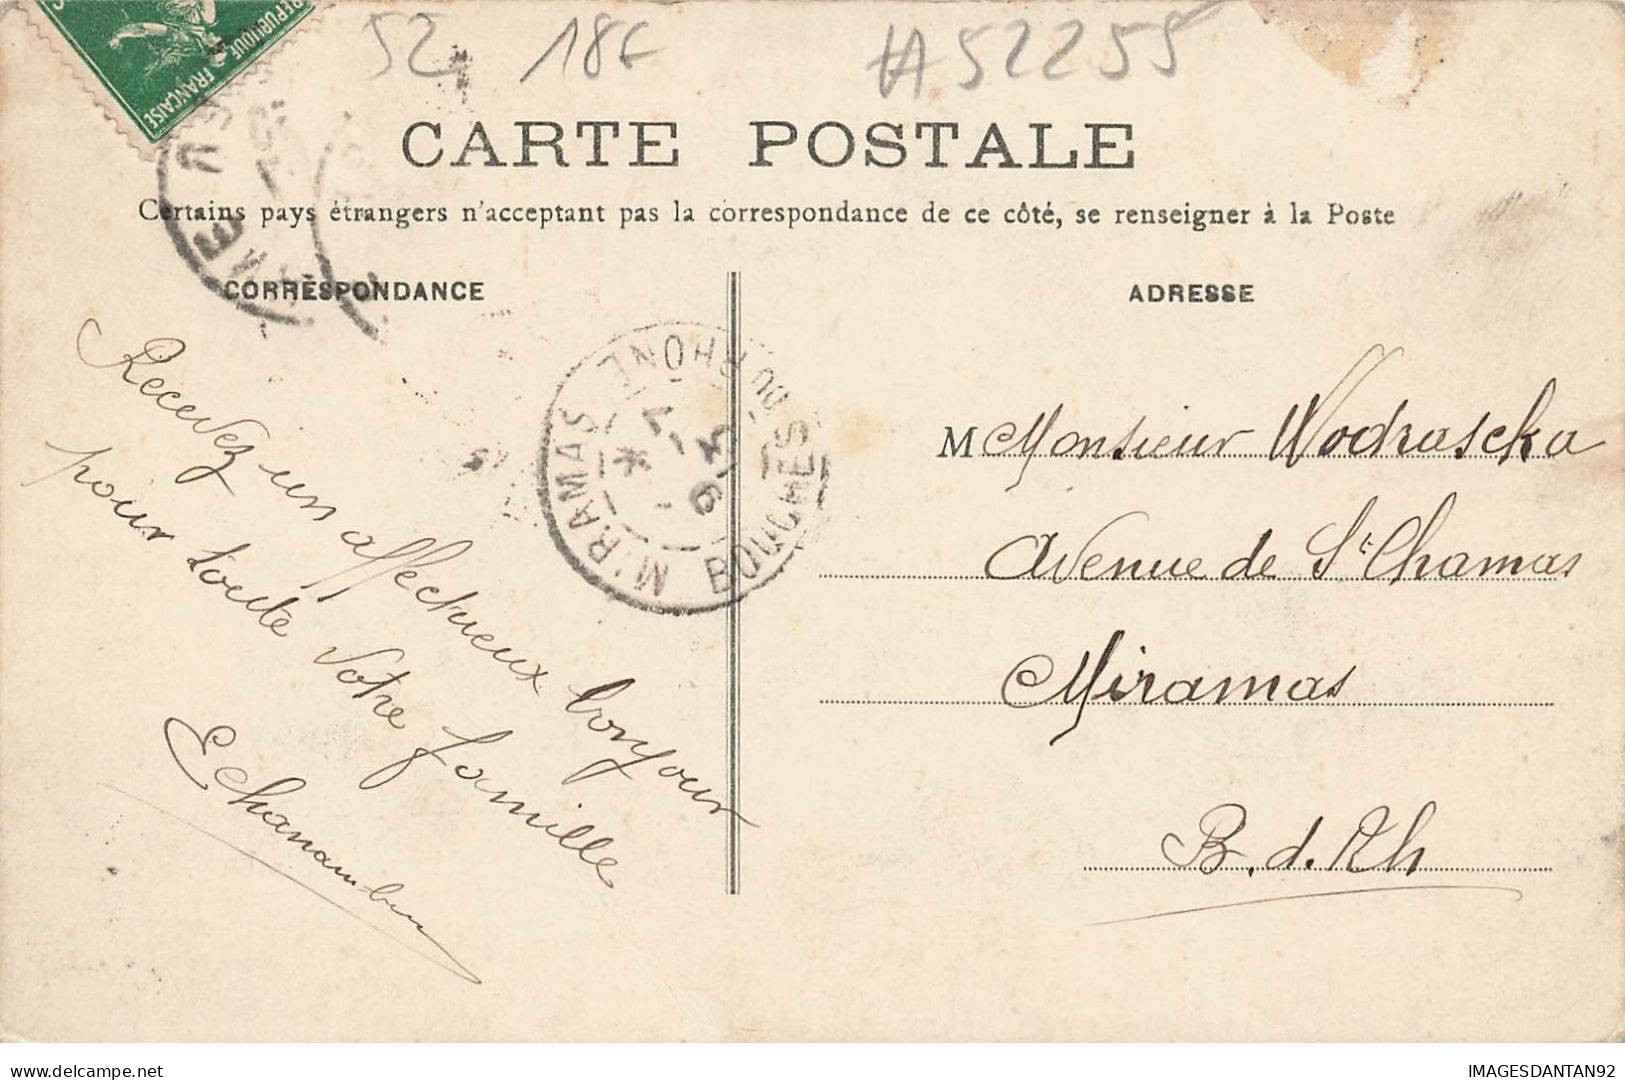 52 18E A52255
REPUBLIQUE FRANÇAISE
CARTE POSTALE
Certains pays étrangers n'acceptant pas la correspondance de ce côté, se renseigner à la Poste
CORRESPONDANCE
ADRESSE
Recevez un affectueux bonjour
pour toute votre famille
MIRAMAS BOUCHES DU RHONE
M Monsieur Wodrascka
Avenue de St Chamas
Miramas
B. d. Rh
IMAGESDANTAN92